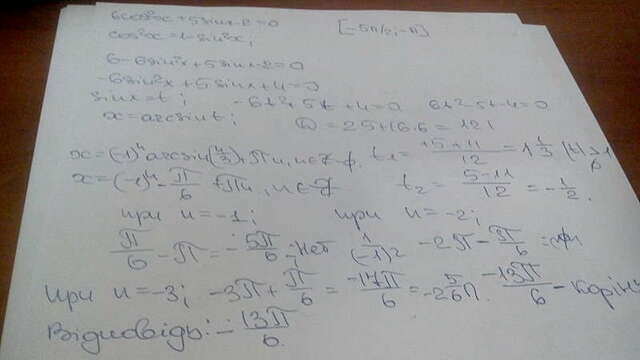 6cos²x+5sinx-2=0 [-5π/2;-π]
cos²x=1-sin²x;
6-6sin²x+5sinx-2=0
-6sin²x+5sinx+4=0
sinx=t; -6t²+5t+4=0 6t²-5t-4=0
x=arcsint; D=25+16·6=121
x=(-1)ⁿarcsin(4/3)+πn, n∈Z-∅. t₁=+5+11/12=1 1/3 (4/3)>1
x=(-1)ⁿ-π/6+πn, n∈Z t₂=5-11/12=-1/2.
при n=-1; при n=-2;
π/6-π=-5π/6-нет -2π-π/6=
при n=-3; -3π+π/6=-17π/6=-2 5/6π. -13π/6-корінь
Відповідь: -13π/6.